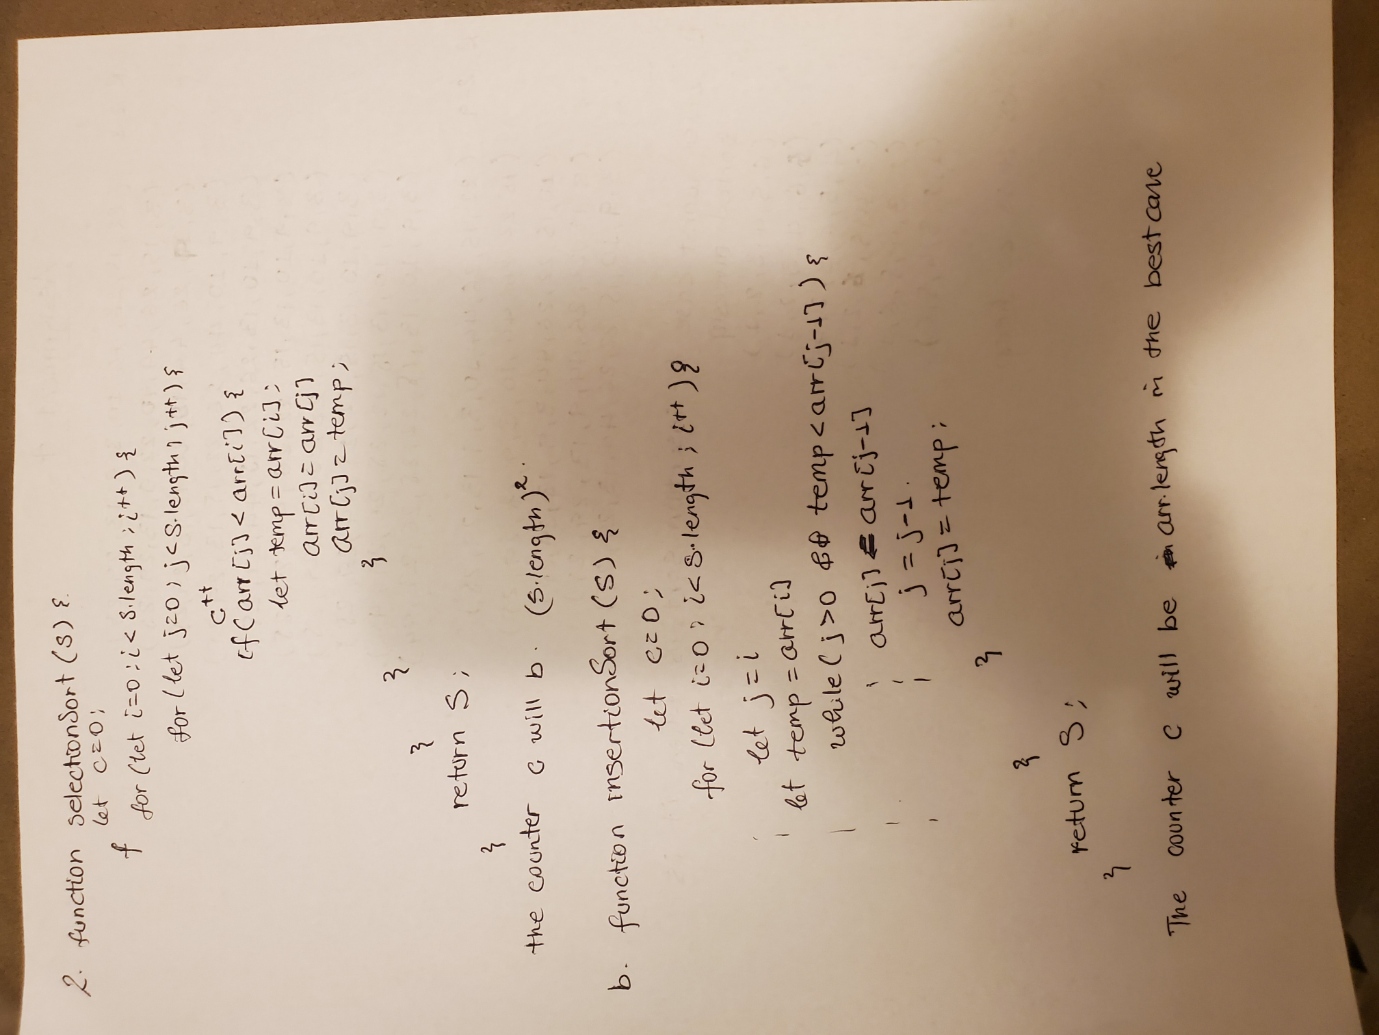 2. function selectionSort (S) {
let c=0;
f for (let i=0; i< S.length ; i++) {
for (let j=0; j<S.length; j++) {
c++
if (arr[j] < arr[i]) {
let temp = arr[i];
arr[i] = arr[j]
arr[j] = temp;
}
}
}
return S;
}
the counter c will b. (S.length)².
b. function insertionSort (S) {
let c=0;
for (let i=0; i< S.length ; i++) {
let j = i
let temp = arr[i]
while (j>0 && temp < arr[j-1]) {
arr[j] = arr[j-1]
j = j-1.
arr[j] = temp;
}
}
return S;
}
The counter c will be arr.length in the best case